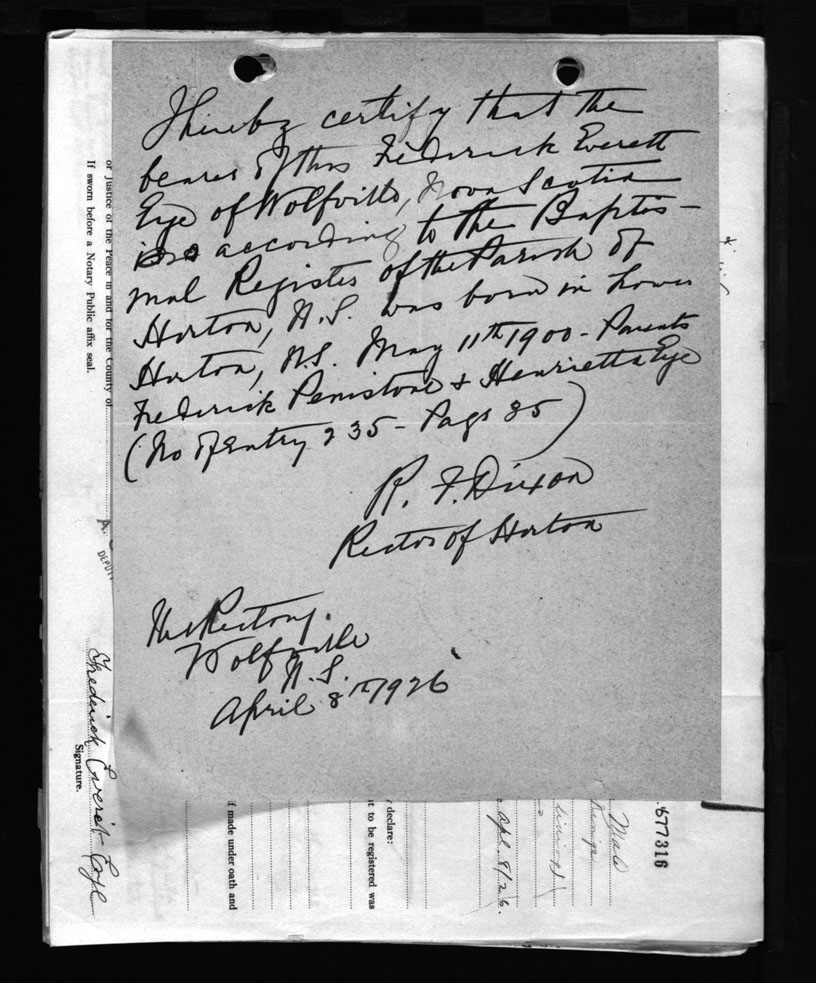 I hereby certify that the
bearer of this Frederick Everett
Eye of Wolfville, Nova Scotia
is according to the Baptis-
mal Register of the Parish of
Horton, N.S. was born in Lower
Horton, N.S. May 11th 1900 - Parents
Frederick Penistone & Henrietta Eye
(No of Entry 235 - Page 85)
R. F. Dixon
Rector of Horton
The Rectory.
Wolfville
N.S.
April 8th 1926
or Justice of the Peace in and for the County of
If sworn before a Notary Public affix seal.
A.
DEPUTY
Frederick Everet Eye
Signature.
677316
Male
Apl. 8/26.
declare:
t to be registered was
if made under oath and